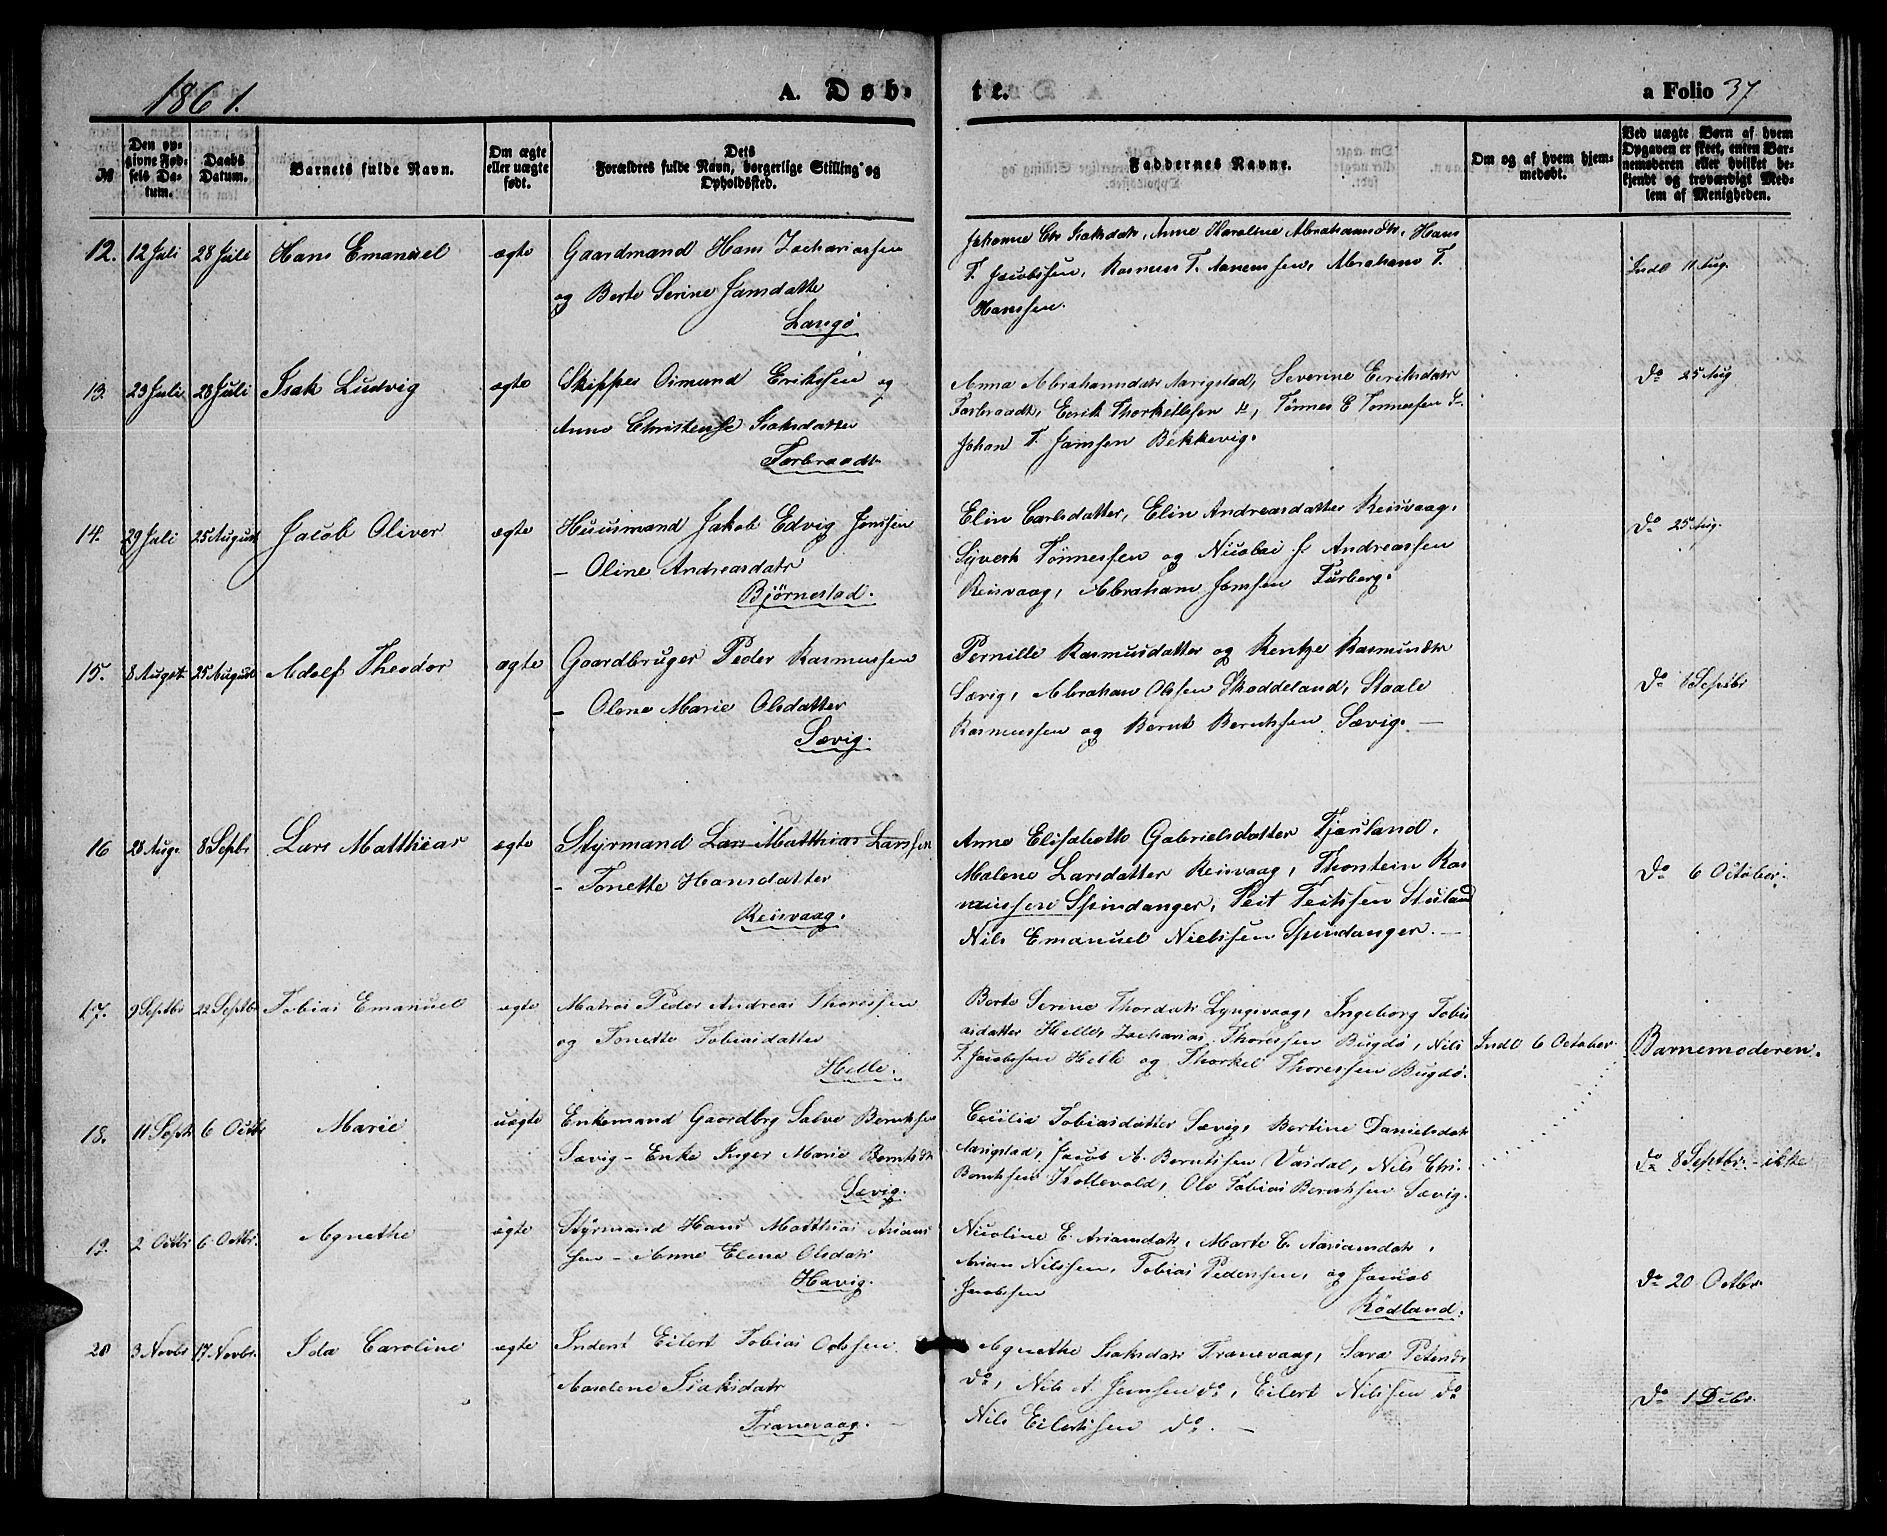 1861.
A. Døb-
te.
a Folio 37
№
Den op-
givne Fød-
sels Da-
tum.
Daabs
Datum.
Barnets fulde Navn.
Om ægte
eller uægte
født.
Dets
Forældres fulde Navn, borgerlige Stilling og
Opholdssted.
Faddernes Navne.
Om og af hvem hjem-
medøbt.
Ved uægte Børn af hvem
Opgaven er skeet, enten Bar-
nemoderen eller hvilket be-
kjendt og troværdigt Med-
lem af Menigheden.
12. 12 Juli 28 Juli Hans Emanuel ægte Gaardmand Hans Zachariassen
og Berte Serine Jansdatte
Langø
Johanne Chr Isaksdatr, Anne Karoline Abrahamsdtr, Hans
T. Jacobsen, Rasmus T. Aanensen, Abraham T.
Hanssen.
Indl 11 Aug.
13. 23 Juli 28 Juli Isak Ludvig ægte Skipper Omund Erikssen og
Anne Christense Isaksdatter
Farbraadt
Anna Abrahamsdatr Aarigstad, Severine Eeriksdatr
Farbraadt, Eerik Thorkildsen, Tønnes E Tønnessen
Johan T. Jansen Bekkevig.
do 25 Aug
14. 29 Juli 25 August Jacob Oliver ægte Huusmand Jakob Edvig Jonssen
– Oline Andreasdatr
Bjørnestad.
Elin Carlsdatter, Elin Andreasdatter Reisvaag,
Syvert Tønnessen og Nicolai Andreassen
Reisvaag, Abraham Jonssen Furberg.
do 25 Aug.
15. 8 August 25 August Adolf Theodor ægte Gaardbruger Peder Rasmussen
– Olene Marie Olsdatter
Sævig.
Pernille Rasmusdatter og Rentze Rasmusdtr
Sævig, Abraham Olssen Skoddeland, Staale
Rasmussen og Bernt Berntssen Sævig. –
do 6 Septbr
16 28 Aug. 8 Sepbr Lars Matthias ægte Styrmand Lars Matthias Larssen
– Tonette Hansdatter
Reisvaag.
Anne Elisabeth Gabrielsdatter Fjæsland,
Malene Larsdatter Reisvaag, Thorstein Ras
mussen Spindanger, Teit Teitssen Stuland
Nils Emanuel Nielssen Spindanger. –
do 6 October.
17. 9 Septbr 22 Septbr Tobias Emanuel ægte Matros Peder Andreas Thoressen
og Tonette Tobiasdatter
Helle.
Berte Serine Thordatr Lyngsvaag, Ingeborg Tobi
asdatter Helle, Zacharias Thoressen Bugdø, Nils
T. Jacobssen Helle og Thorkel Thoressen Bugdø.
Indl 6 October.
Barnemoderen.
18. 11 Septr 6 Octbr Marie uægte Enkemand Gaardbrg Salve Berntssen
Sævig – Enke Inger Marie Berntsdtr
Sævig.
Cecilia Tobiasdatter Sævig, Bertine Danielsdatr
Aarigstad, Jacob A. Berntssen Vasdal, Nils Chr.
Berntssen Kollevold, Ole Tobias Berntssen Sævig.
do 8 Septbr. – ikke
19. 2 Octbr 6 Octbr. Agnethe ægte Styrmand Hans Matthias Arians
sen – Anne Elene Olsdatr
Havig.
Nicoline E. Ariansdatr, Marte C. Aariansdatr,
Arian Nilssen, Tobias Pederssen, og Jacob
Jacobssen
Rødland.
do 20 Octbr
20 3 Novbr 17 Novbr. Ida Caroline ægte Inderst Eilert Tobias Odssen
Aaselene Isaksdatr
Tranevaag. –
Agnethe Isaksdatr Tranevaag, Sara Petersdr
do, Nils A. Jonssen do, Eilert Nilssen do
Nils Eilertssen do. –
do 1 Decbr.